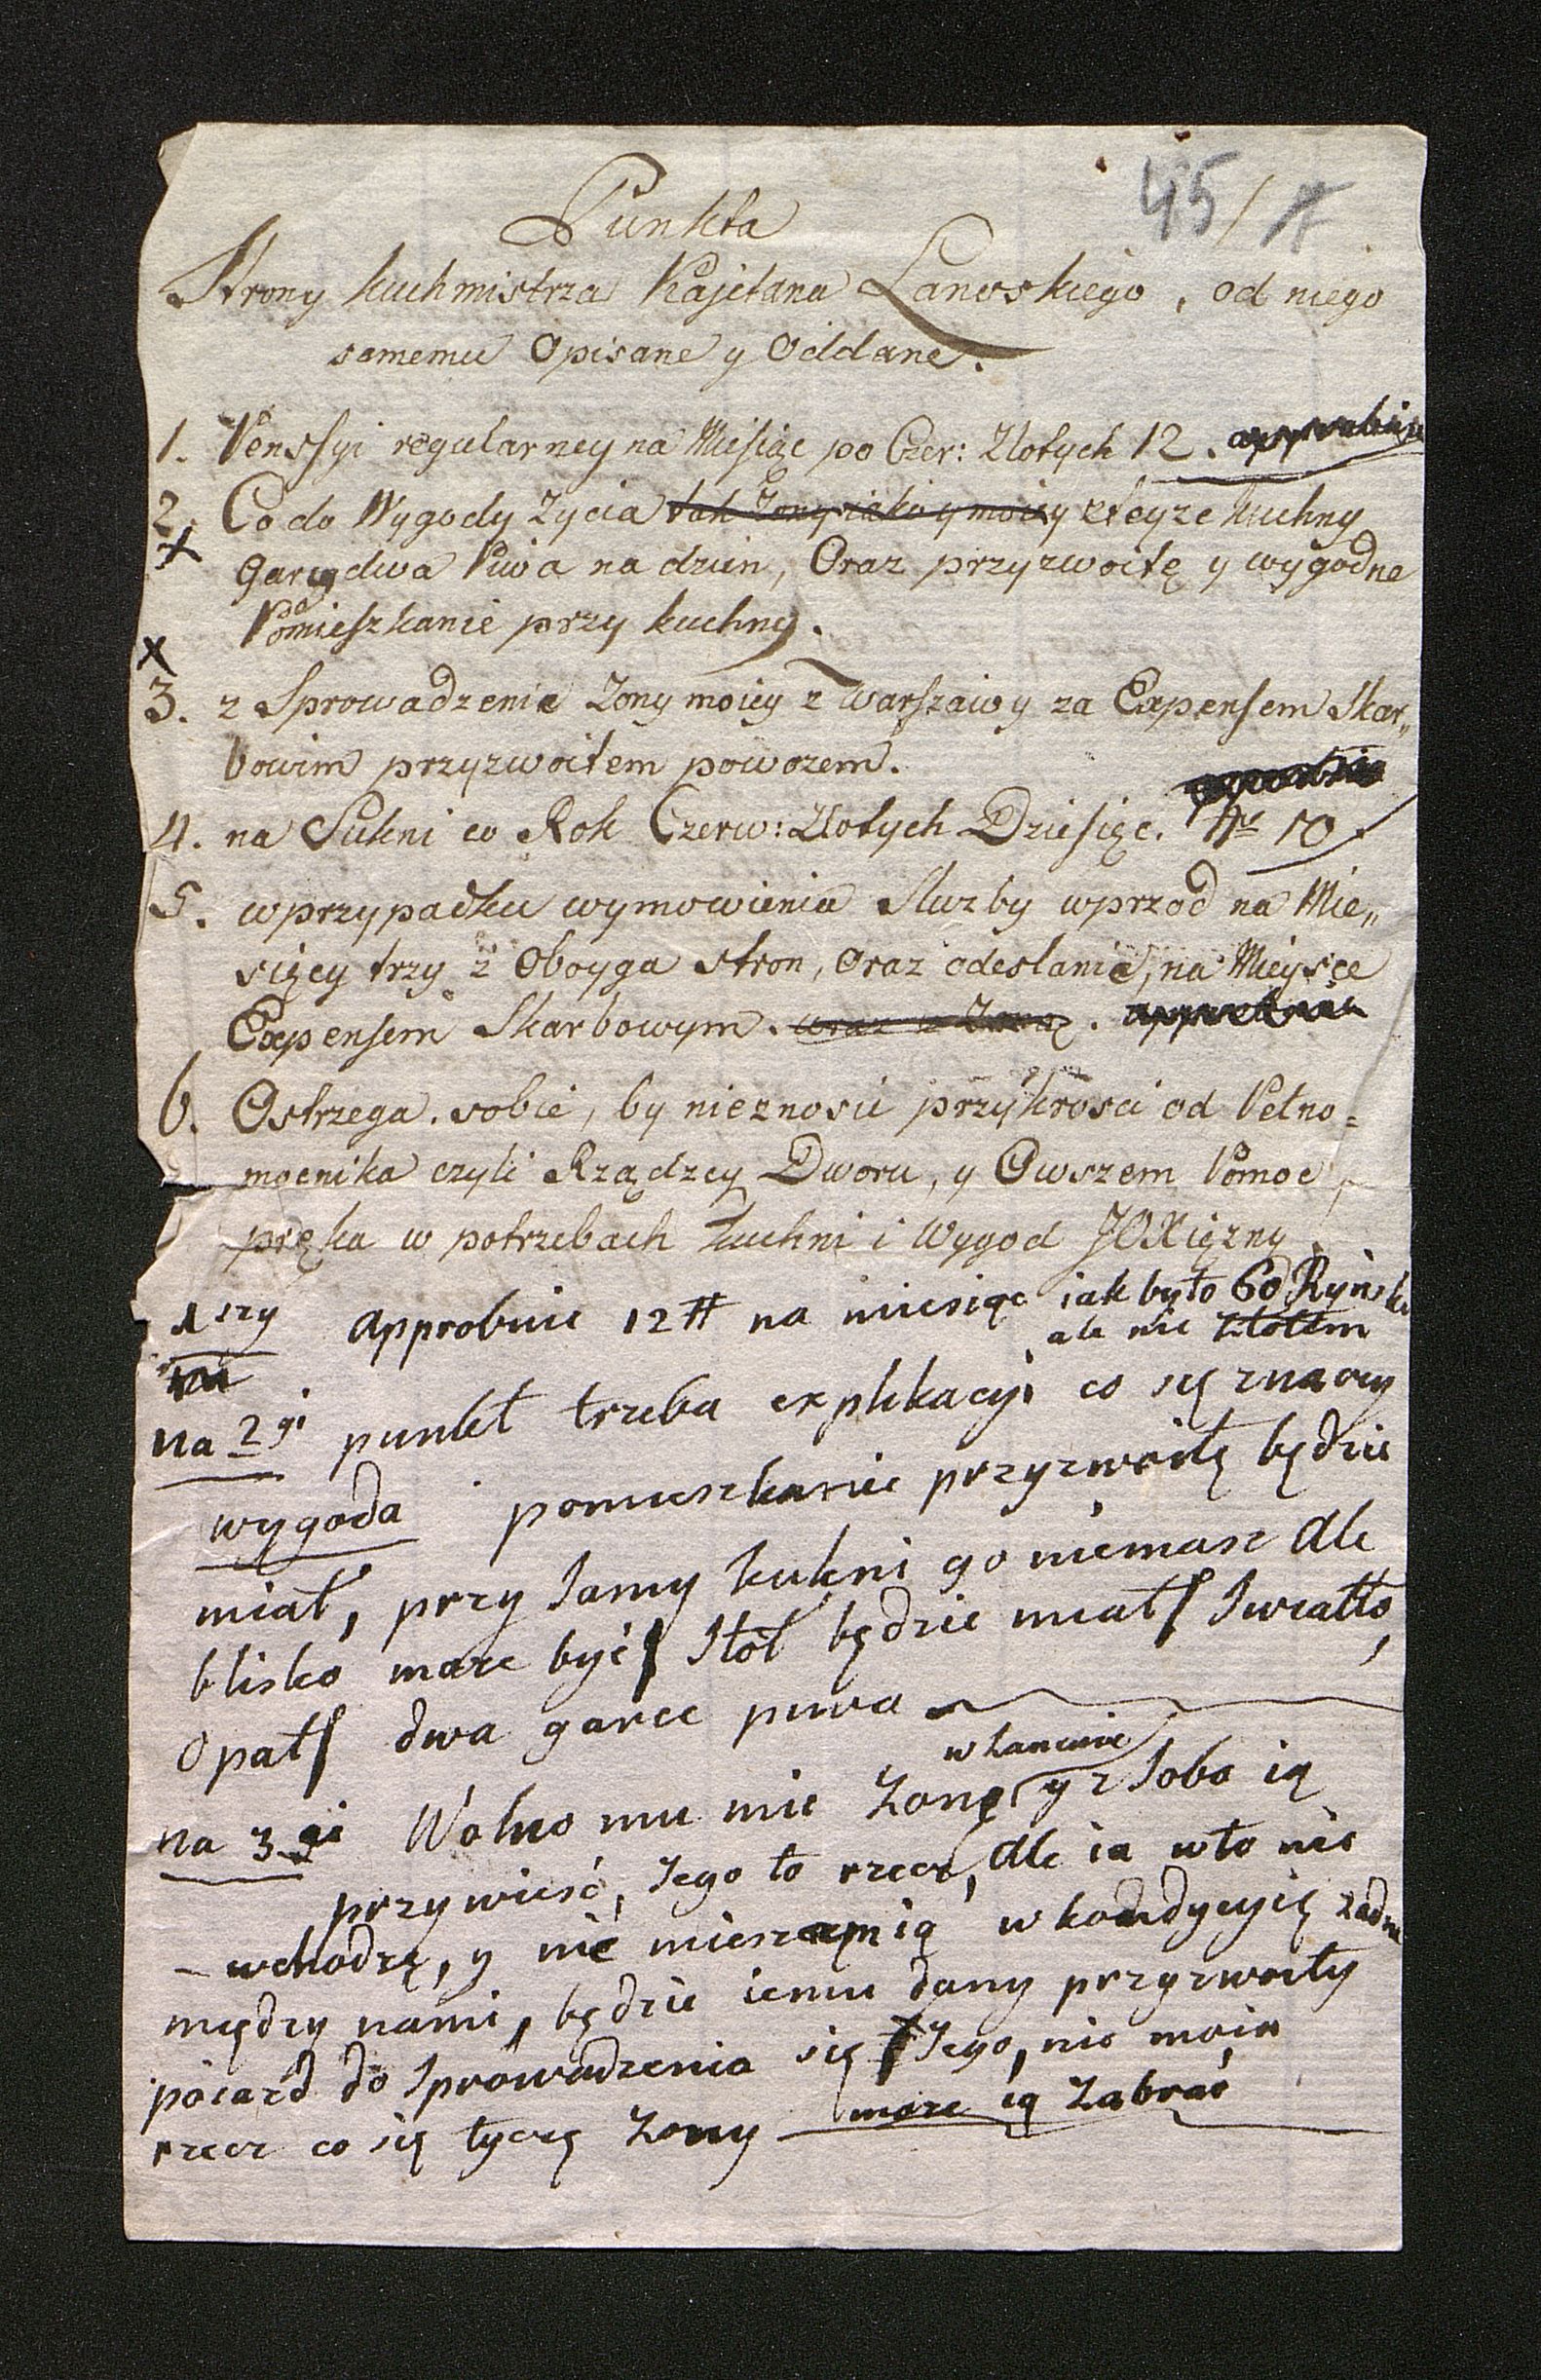 45/
Punkta
Strony kuchmistrza Kajetana Lanoskiego, od niego
samemu Opisane y Oddane.
1. Penssyi regularney na Miesiąc po Czer: Złotych 12. approbuie
2. Co do Wygody Zycia tak Zony iako y moiey z teyze kuchny
garcy dwa Piwa na dzien, Oraz przyzwoitę y wygodne
Pomieszkanie przy kuchny.
3. z Sprowadzenie Zony moiey z Warszawy za Expensem Skar„
bowim przyzwoitem powozem.
4. na Sukni co Rok Czerw: Złotych Dziesięc. # 10
5. w przypadku wymowienia Sluzby wprzod na Mie„
sięcy trzy z Oboyga stron, Oraz odeslanie, na Mieysce
Expensem Skarbowym. wraz z Zoną. approbuie
6. Ostrzega sobie, by nieznosic przykrosci od Pełno=
mocnika czyli Rządzcy Dworu, y Owszem Pomoc
pręka w potrzebach kuchni i Wygod JOXiężny.
1szy approbuie 12 # na miesiąc iak było 60 Ryńsk
ale nie złotem
na 2gi punkt trzeba explikacyi co się znaczy
wygoda pomieszkanie przyzwoitę będzie
miał, przy samy kuhni go niemasz ale
blisko może być Stół będzie miał Swiatło,
Opał dwa garce piwa
w Lancucie
na 3gi Wolno mu mie Zonę y z Sobo ią
przywieść, Jego to rzecz, ale ia w to nie
wchodzę, y nie mieszam ią w kondycyię zadne
między nami, będzie iemu dany przyzwoity
poiazd do Sprowadzenia się Jego, nie moia
rzecz co się tyczę Zony może ią Zabrać